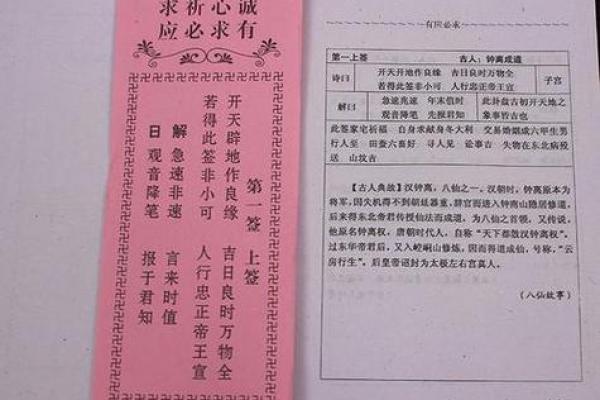 诚心祈求
有求必应
第一签 上签
开天辟地作良缘 吉日良时万物全
若得此签非小可 人行忠正帝王宣
解 急速非速 言来时值
日 观音降笔 报于君知
有应必求
第一上签 古人：钟离成道
诗曰 开天开地作良缘 吉日良时万物全 子宫
若得此签非小可 人行忠正帝王宣
解曰 急速兆速 年末值时 此卦盘古初开天地之
观音降笔 先报君知 象事皆吉也
此签家宅祈福 自身求献身冬大利 交易婚姻成六甲生男
行人至 田蚕六畜好 寻人见 讼事吉 失物在东北病投
送 山坟吉
【古人典故】汉钟离，八仙之一，汉朝时，钟离原本为
将军，因失机得不到朝廷器重，辞官而进入钟南山隐居修道，
后来得东北帝君传授仙法而成道，为八仙之首领，又传说，
他原名钟离权，唐朝时代人，自称“天下都散汉钟离权”。
过东华帝君后，又入崆峒山修炼，因而得道成仙，号称，“云
房行生”。后皇帝诏封为太极左右宫真人。
（八仙故事）